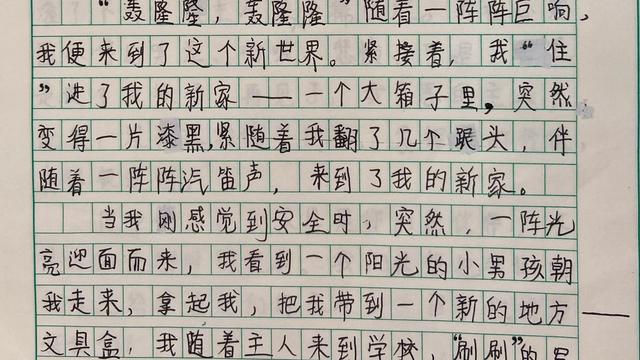 “轰隆隆，轰隆隆”随着一阵阵巨响，
我便来到了这个新世界。紧接着，我“住
”进了我的新家——一个大箱子里，突然
变得一片漆黑，紧随着我翻了几个跟头，伴
随着一阵阵汽笛声，来到了我的新家。
当我刚感觉到安全时，突然，一阵光
亮迎面而来，我看到一个阳光的小男孩朝
我走来，拿起我，把我带到一个新的地方——
文具盒，我随着主人来到学校，“刷刷”的